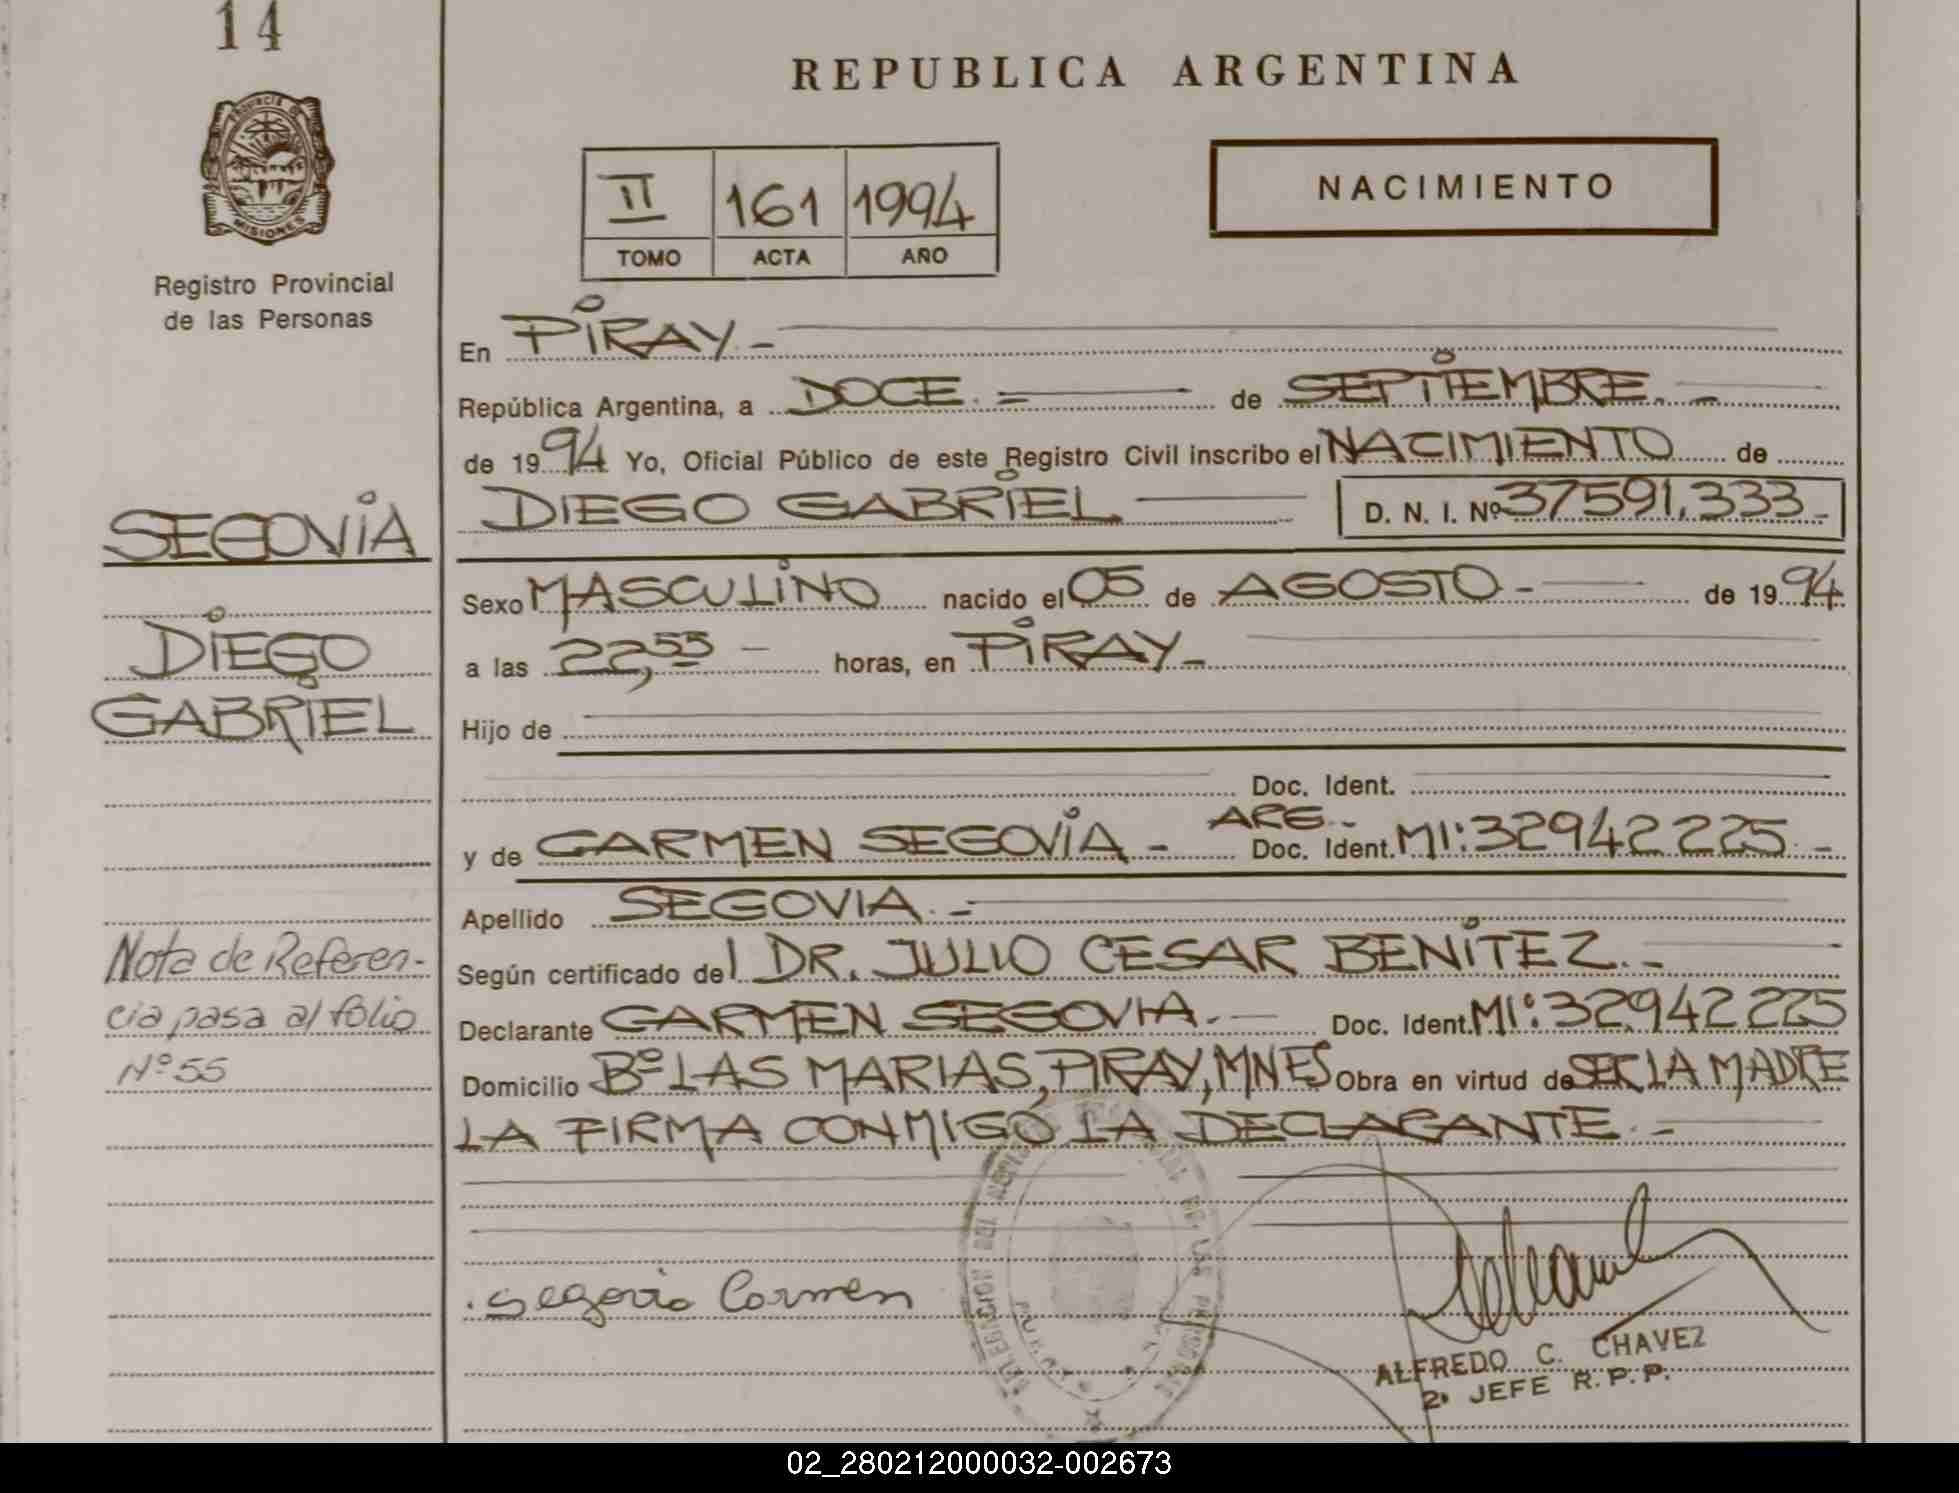 14
REPUBLICA ARGENTINA
PROVINCIA DE
MISIONES
Registro Provincial
de las Personas
II 161 1994
TOMO ACTA AÑO
NACIMIENTO
En PIRAY -
República Argentina, a DOCE. = de SEPTIEMBRE. -
de 1994 Yo, Oficial Público de este Registro Civil inscribo el NACIMIENTO de
DIEGO GABRIEL D. N. I. Nº 37591.333 -
SEGOVIA
Sexo MASCULINO nacido el 05 de AGOSTO - de 1994
DIEGO
a las 22,55 - horas, en PIRAY -
GABRIEL
Hijo de
Doc. Ident.
y de CARMEN SEGOVIA - ARG. - Doc. Ident. MI: 32942225. -
Apellido SEGOVIA. -
Según certificado del DR. JULIO CESAR BENITEZ. -
Declarante CARMEN SEGOVIA. - Doc. Ident. MI: 32.942225
Domicilio Bº LAS MARIAS, PIRAY, MNES Obra en virtud de SER LA MADRE
LA FIRMA CONMIGO LA DECLARANTE. -
Nota de Referen-
cia pasa al folio
Nº 55
Segovia Carmen
ALFREDO C. CHAVEZ
2º JEFE R.P.P.
02_280212000032-002673